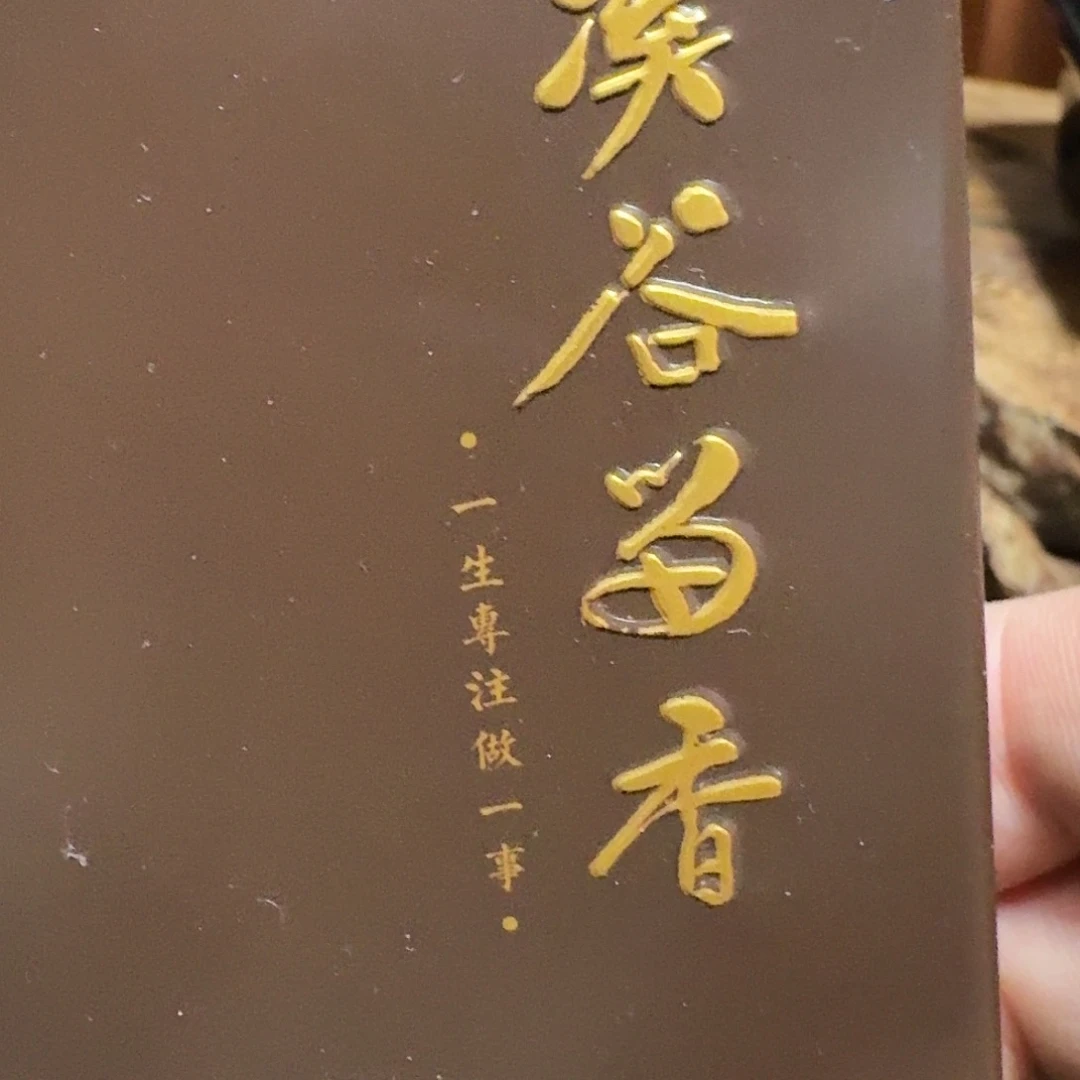 溪谷留香
•一生專注做一事•